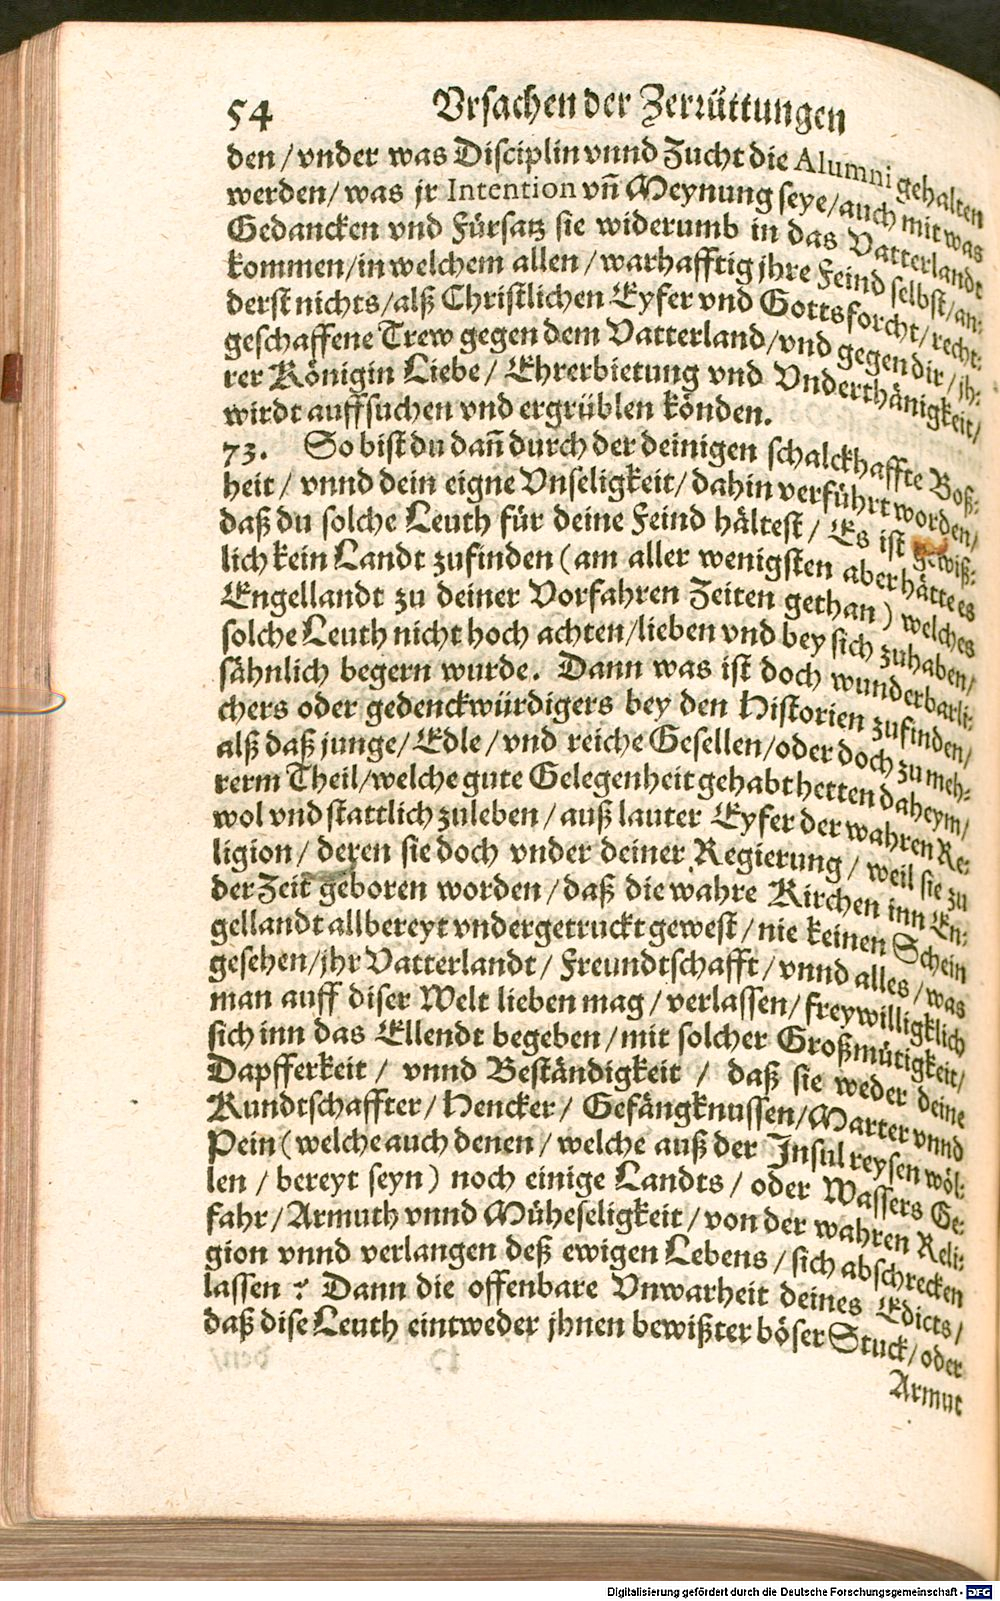 54 Vrsachen der Zerrüttungen
den / vnder was Disciplin vnnd Zucht die Alumni gehalten
werden / was jr Intention vñ Meynung seye / auch mit was
Gedancken vnd Fürsatz sie widerumb in das Vatterlandt
kommen / in welchem allen / warhafftig jhre Feind selbst / an-
derst nichts / alß Christlichen Eyfer vnd Gottsforcht / recht-
geschaffene Trew gegen dem Vatterland / vnd gegen dir / jh-
rer Königin Liebe / Ehrerbietung vnd Vnderthänigkeit /
wirdt auffsuchen vnd ergrüblen könden.
73. So bist du dañ durch der deinigen schalckhaffte Boß-
heit / vnnd dein eigne Vnseligkeit / dahin verführt worden /
daß du solche Leuth für deine Feind hältest / Es ist gewiß-
lich kein Landt zufinden (am aller wenigsten aber hätte es
Engellandt zu deiner Vorfahren Zeiten gethan) welches
solche Leuth nicht hoch achten / lieben vnd bey sich zuhaben /
sähnlich begern wurde. Dann was ist doch wunderbarli-
chers oder gedenckwürdigers bey den Historien zufinden /
alß daß junge / Edle / vnd reiche Gesellen / oder doch zu meh-
rerm Theil / welche gute Gelegenheit gehabt hetten daheym /
wol vnd stattlich zuleben / auß lauter Eyfer der wahren Re-
ligion / deren sie doch vnder deiner Regierung / weil sie zu
der Zeit geboren worden / daß die wahre Kirchen inn En-
gellandt allbereyt vndergetruckt gewest / nie keinen Schein
gesehen / jhr Vatterlandt / Freundtschafft / vnnd alles / was
man auff diser Welt lieben mag / verlassen / freywilligklich
sich inn das Ellendt begeben / mit solcher Großmütigkeit /
Dapfferkeit / vnnd Beständigkeit / daß sie weder deine
Kundtschaffter / Hencker / Gefängknussen / Marter vnnd
Pein (welche auch denen / welche auß der Insul reysen wöl-
len / bereyt seyn) noch einige Landts / oder Wassers Ge-
fahr / Armuth vnnd Müheseligkeit / von der wahren Reli-
gion vnnd verlangen deß ewigen Lebens / sich abschrecken
lassen ? Dann die offenbare Vnwarheit deines Edicts /
daß dise Leuth eintweder jhnen bewißter böser Stuck / oder
Armut
Digitalisierung gefördert durch die Deutsche Forschungsgemeinschaft - DFG